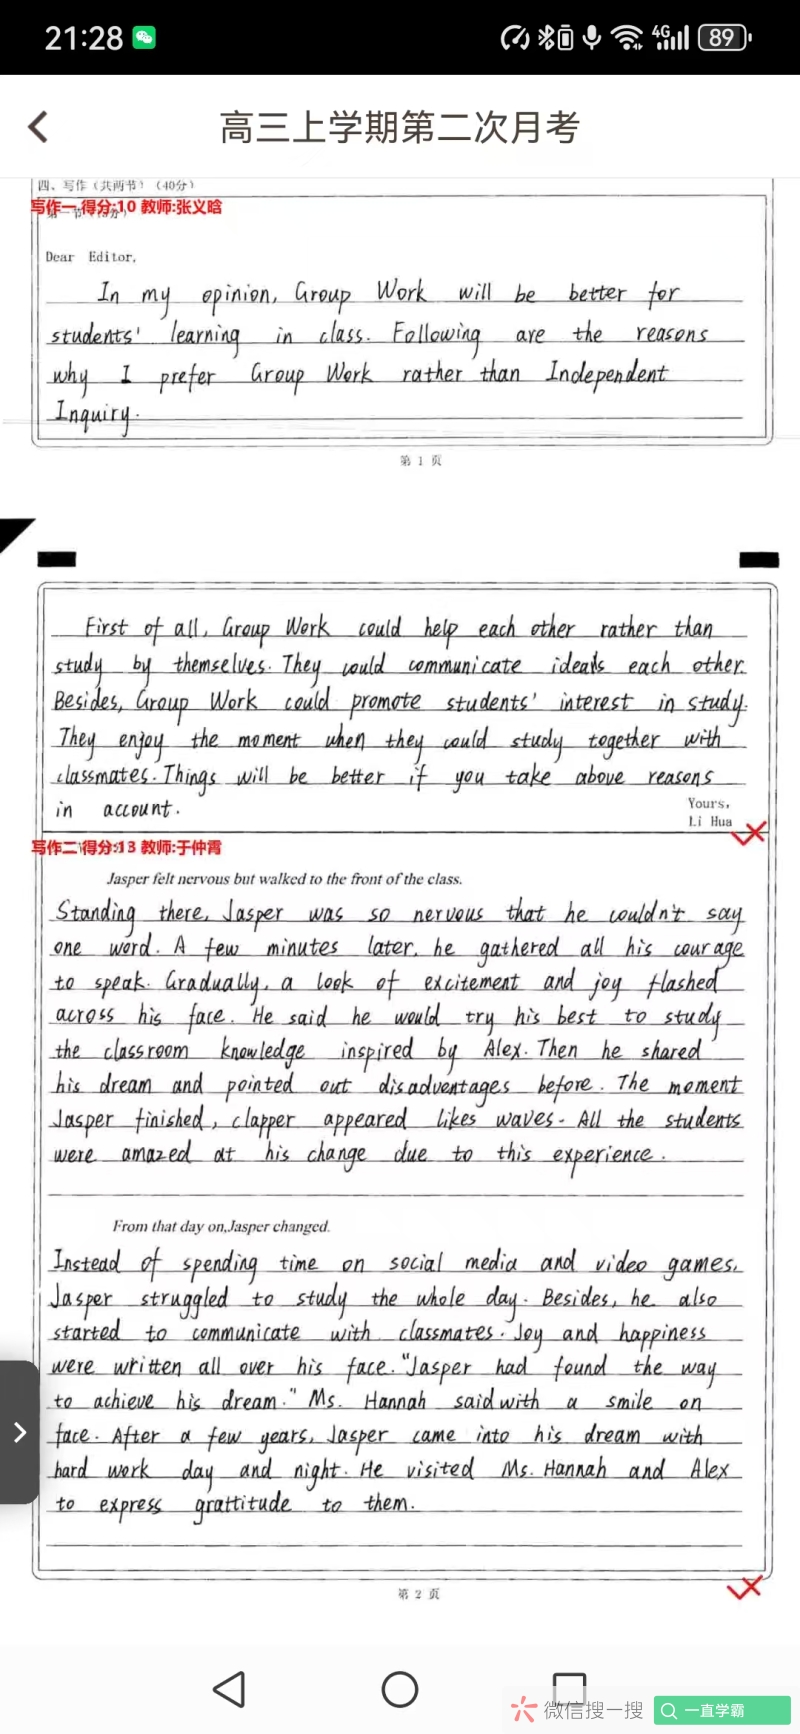 21:28
4G
89
高三上学期第二次月考
四、写作（共两节）（40分）
写作一得分:10 教师:张义晗
Dear Editor,
In my opinion, Group Work will be better for
students' learning in class. Following are the reasons
why I prefer Group Work rather than Independent
Inquiry.
第 1 页
First of all, Group Work could help each other rather than
study by themselves. They could communicate each other.
Besides, Group Work could promote students' interest in study.
They enjoy the moment when they could study together with
classmates. Things will be better if you take above reasons
in account.
Yours,
Li Hua
写作二得分:13 教师:于仲霄
Jasper felt nervous but walked to the front of the class.
Standing there, Jasper was so nervous that he couldn't say
one word. A few minutes later, he gathered all his courage
to speak. Gradually, a look of excitement and joy flashed
across his face. He said he would try his best to study
the classroom knowledge inspired by Alex. Then he shared
his dream and pointed out disadventages before. The moment
Jasper finished, clapper appeared likes waves. All the students
were amazed at his change due to this experience.
From that day on,Jasper changed.
Instead of spending time on social media and video games,
Jasper struggled to study the whole day. Besides, he also
started to communicate with classmates. Joy and happiness
were written all over his face. "Jasper had found the way
to achieve his dream." Ms. Hannah said with a smile on
face. After a few years, Jasper came into his dream with
hard work day and night. He visited Ms. Hannah and Alex
to express grattitude to them.
第 2 页
微信搜一搜
一直学霸